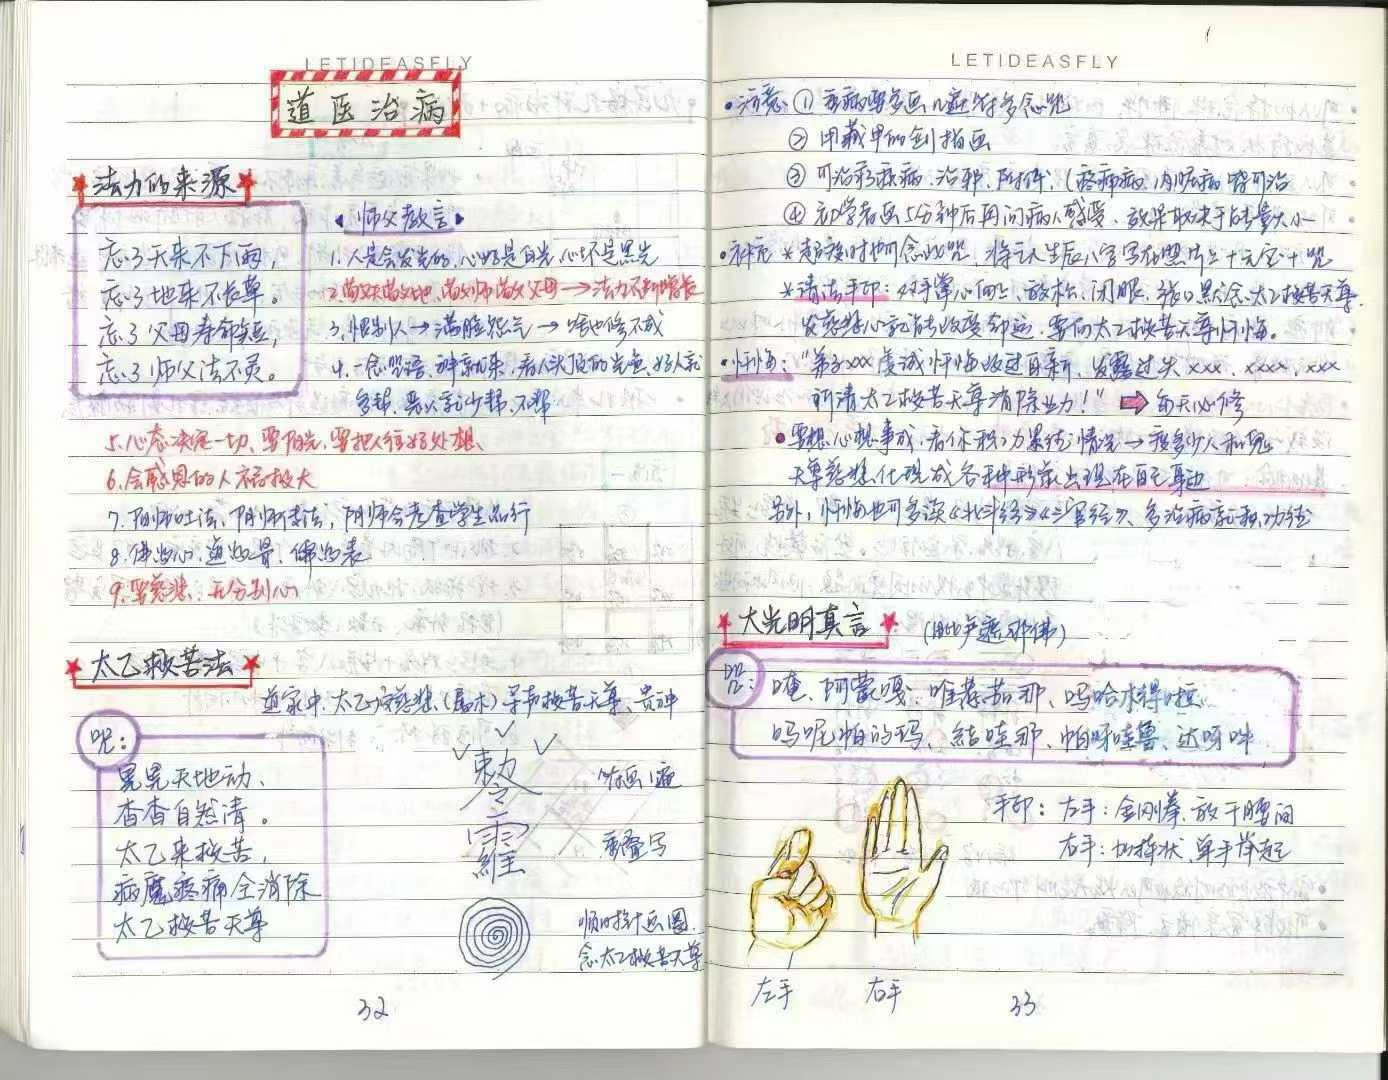 LETIDEASFLY
道医治病
法力的来源
忘了天来不下雨，
忘了地来不长草。
忘了父母寿命短，
忘了师父法不灵。
师父教言
1.人是会发光的，心好是白光，心坏是黑光
2.尚天尚地，尚师尚父母→法力不断增长
3.恨别人→满脸怨气→啥也修不成
4.一念咒语，神就来，看人头顶的光，好人就
多帮，恶人就少帮、不帮
5.心态决定一切，要阳光，要把人往好处想、
6.会感恩的人福报大
7.阴师吐法，阴师考法，阴师会考查学生品行
9.要慈悲，无分别心
太乙救苦法
道家中，太乙最慈悲，(属木)寻声救苦天尊、贵神
咒：
晃晃天地动、
杳杳自然清。
太乙来救苦，
病魔疼痛全消除
太乙救苦天尊
敕令
你画1遍
重叠写
顺时针画圈，
念太乙救苦天尊
32
LETIDEASFLY
注意：① 重病要多画几遍，符多念咒
② 用藏甲的剑指画
③ 可治邪疾病、治邪、附体、(疼痛病、内脏病皆可治
④ 初学者画5分钟后再问病人感受，效果取决于能量大小
补充 *超度时也可念此咒，将亡人生辰八字写在照片上+元宝+咒
*请法手印：双手掌心向上、放松、闭眼、张口默念太乙救苦天尊，
发慈悲心就能改变命运，要向太乙救苦天尊忏悔。
忏悔："弟子xxx虔诚忏悔改过自新，发露过失xxx、xxxx、xxx
祈请太乙救苦天尊消除业力！" ➡ 每天必修
要想心想事成，看你积功累德情况→度多少人和鬼
天尊慈悲，化现成各种形象出现在自己身边
另外，忏悔也可多读《北斗经》《三官经》、多治病就积功德
大光明真言
(毗卢遮那佛)
咒：唵、阿蒙嘎、唯荐茹那、吗哈木得啦
吗呢帕的玛、結哇那、帕呀哇鲁、达呀吽
手印：左手：金刚拳，放于腰间
右手：加持状、单手举起
左手
右手
33